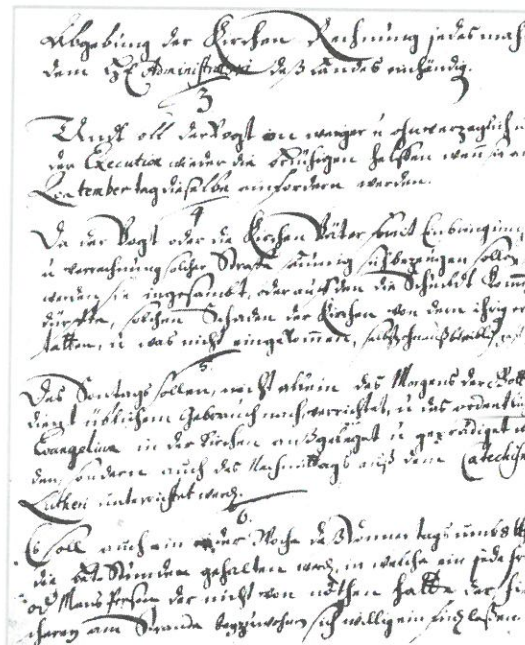 Ablgebung der Kirchen Rechnung jedes mahl
dem HE Administratori deß Landes einhändig.
3
Undt soll der Vogt in weniger u ohnverzüglich
der Execution wieder die brüchigen helffen wenn sie
Quatembertag dieselbe einfordern werden.
4
Da der Vogt oder die Kirchen Väter hirmit Einbringung
u verrechnung solcher Straffe säumig sich bezeugen sollen
werden sie ingesambt, oder auff den die Schuldt
dürffte, solchen Schaden der Kirchen von dem ihrig
statten, u was nicht eingekommen, selbst
5
Des Sontags sollen, nicht allein des Morgens der
dienst üblichem Gebrauch nach, verrichtet, u das ordentliche
Evangelium in der Kirchen außgeleget u geprediget
den, sondern auch des Nachmittags auß dem Catechis
Lutheri unterrichtet werd.
6.
Es soll auch ein der Woche deß Donnertags umb
die bet Stunden gehalten werd, in welche ein jede
od Mans Person der nicht von nöthen hatte der
cherey am Strande beyzuwohnen sich willig einfinden laßen.